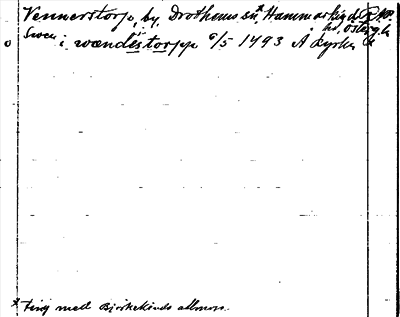 Vennerstorp, by, Drothems sn,* Hammarkinds
hd, Östergl.
Swen i wændestorpp 6/5 1493 A Dyrker
* ting med Björkekinds allmon.